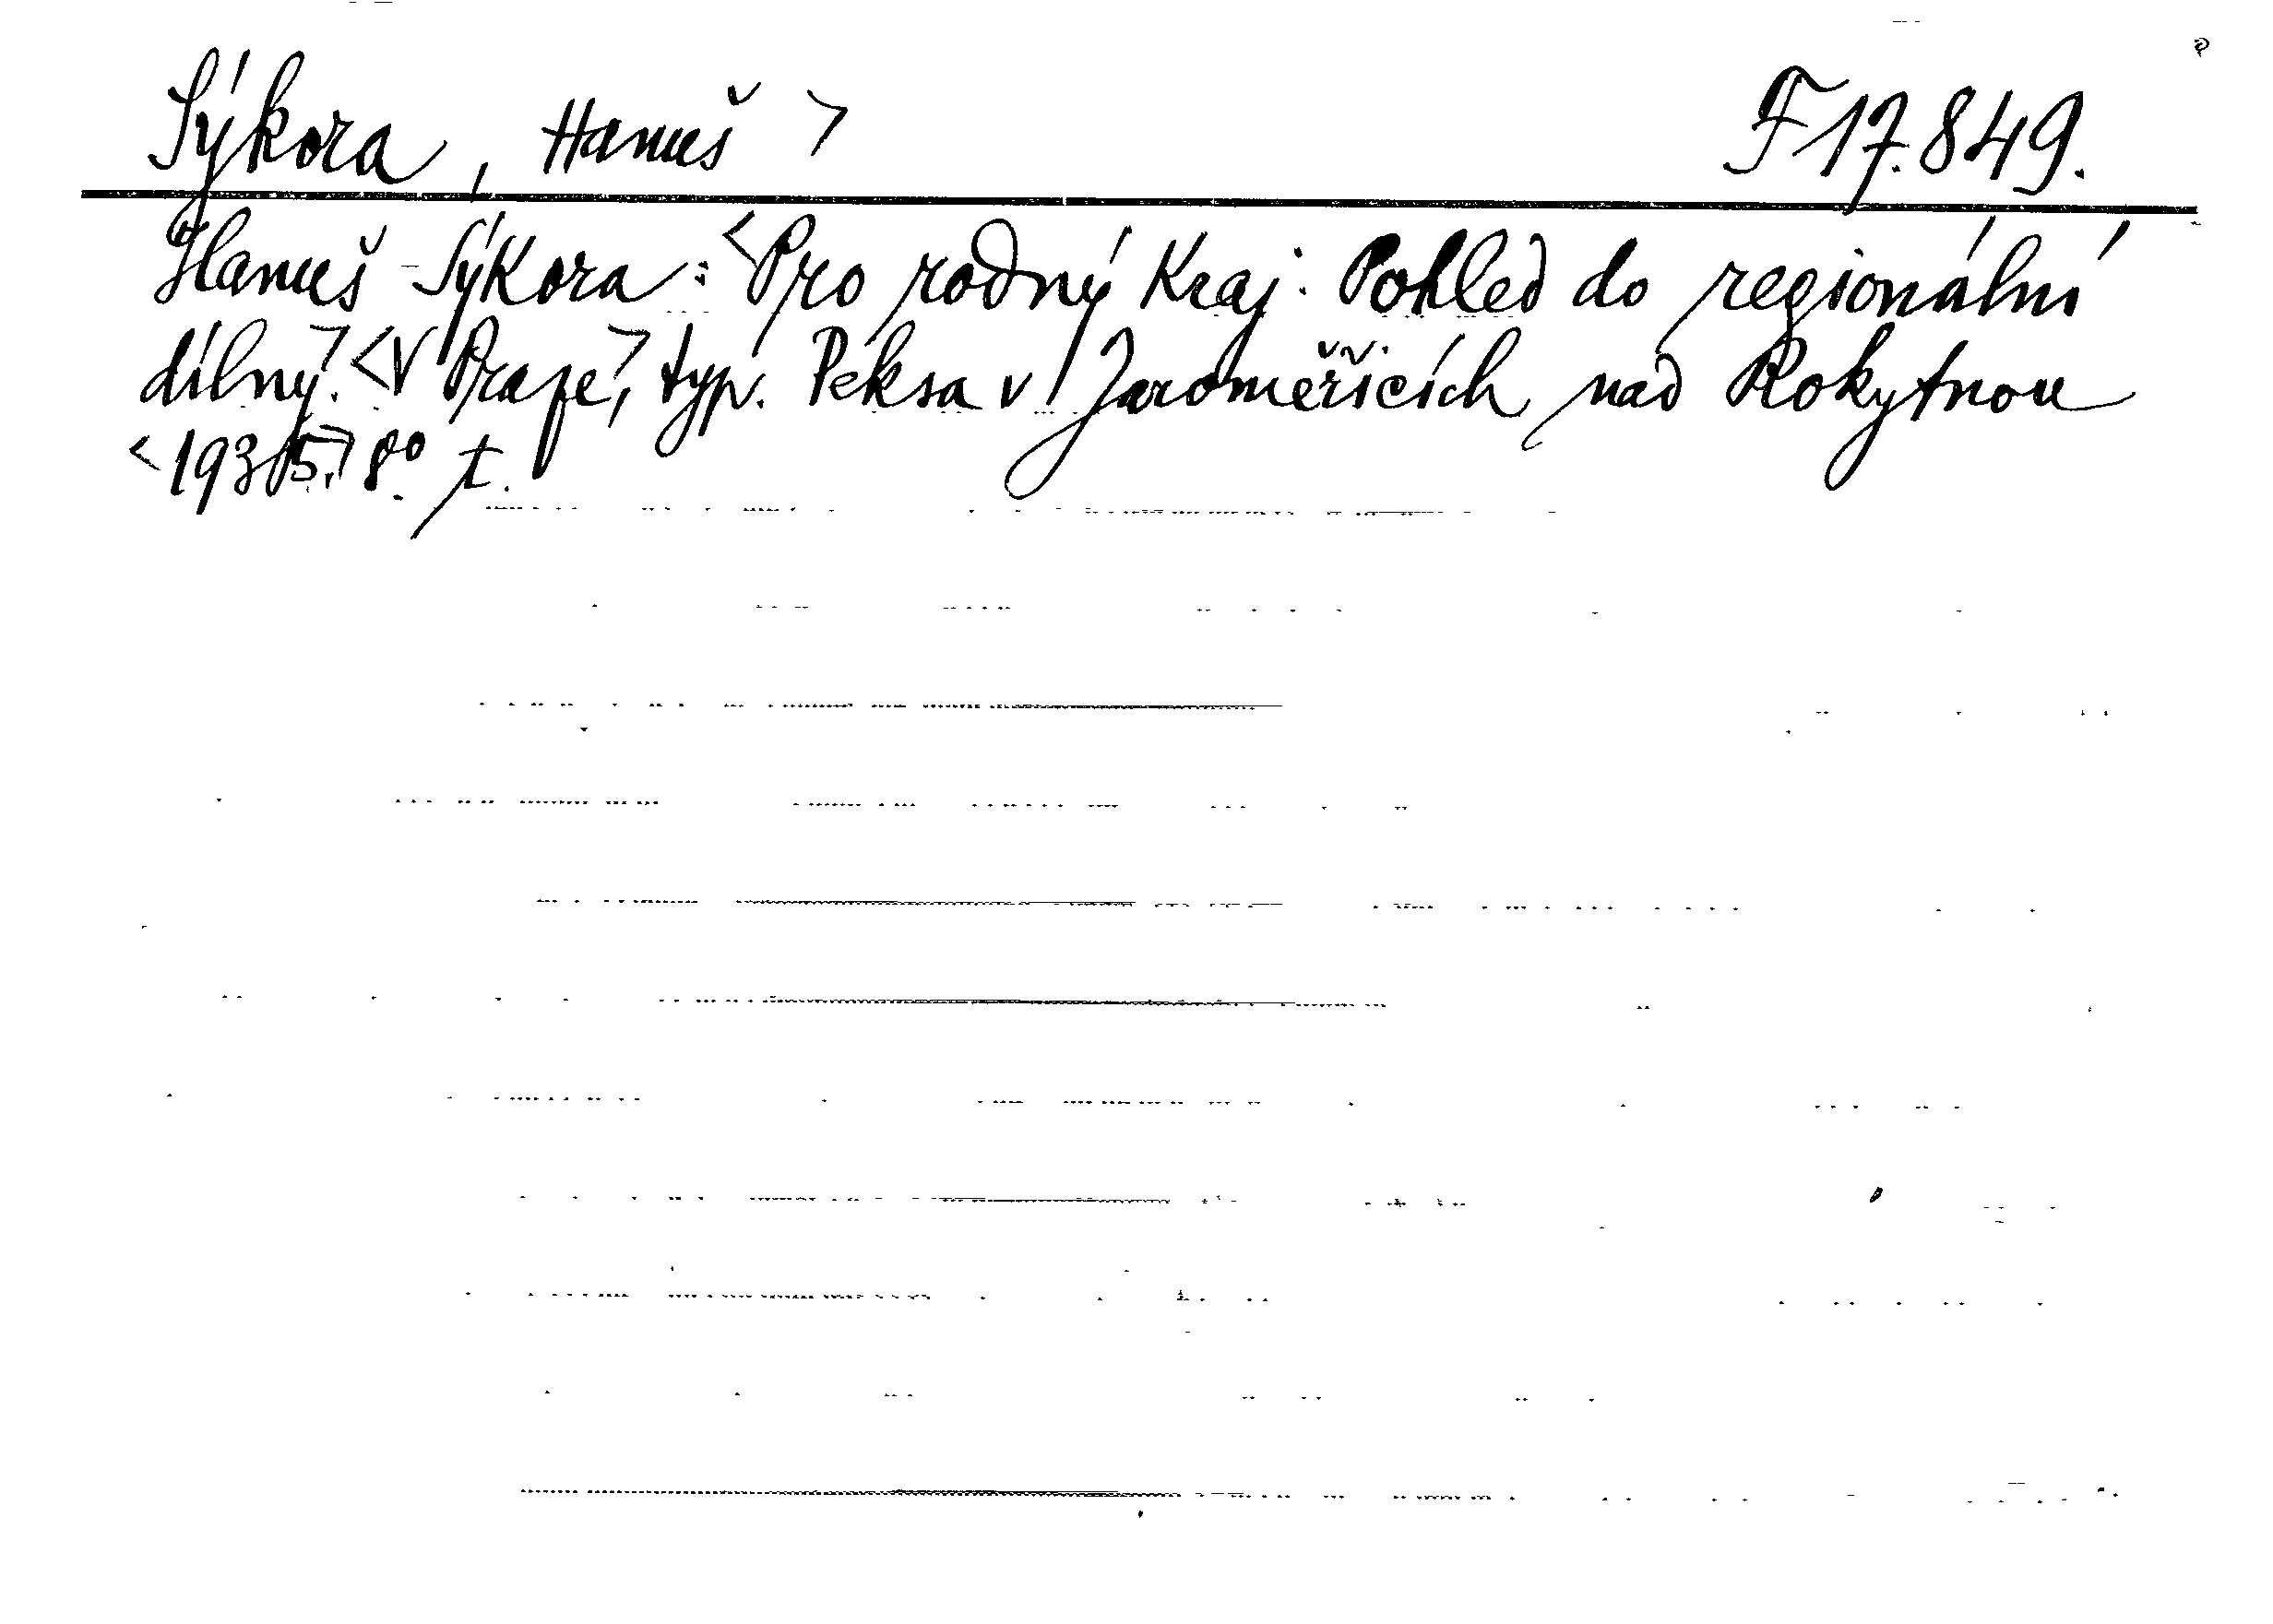 Sýkora, Hanuš > F 17.849.
Hanuš Sýkora: <Pro rodný kraj. Pohled do regionální
dílny.> <V Praze>, typ. Péksa v Jaroměřicích nad Rokytnou
<1935.> 8° t.